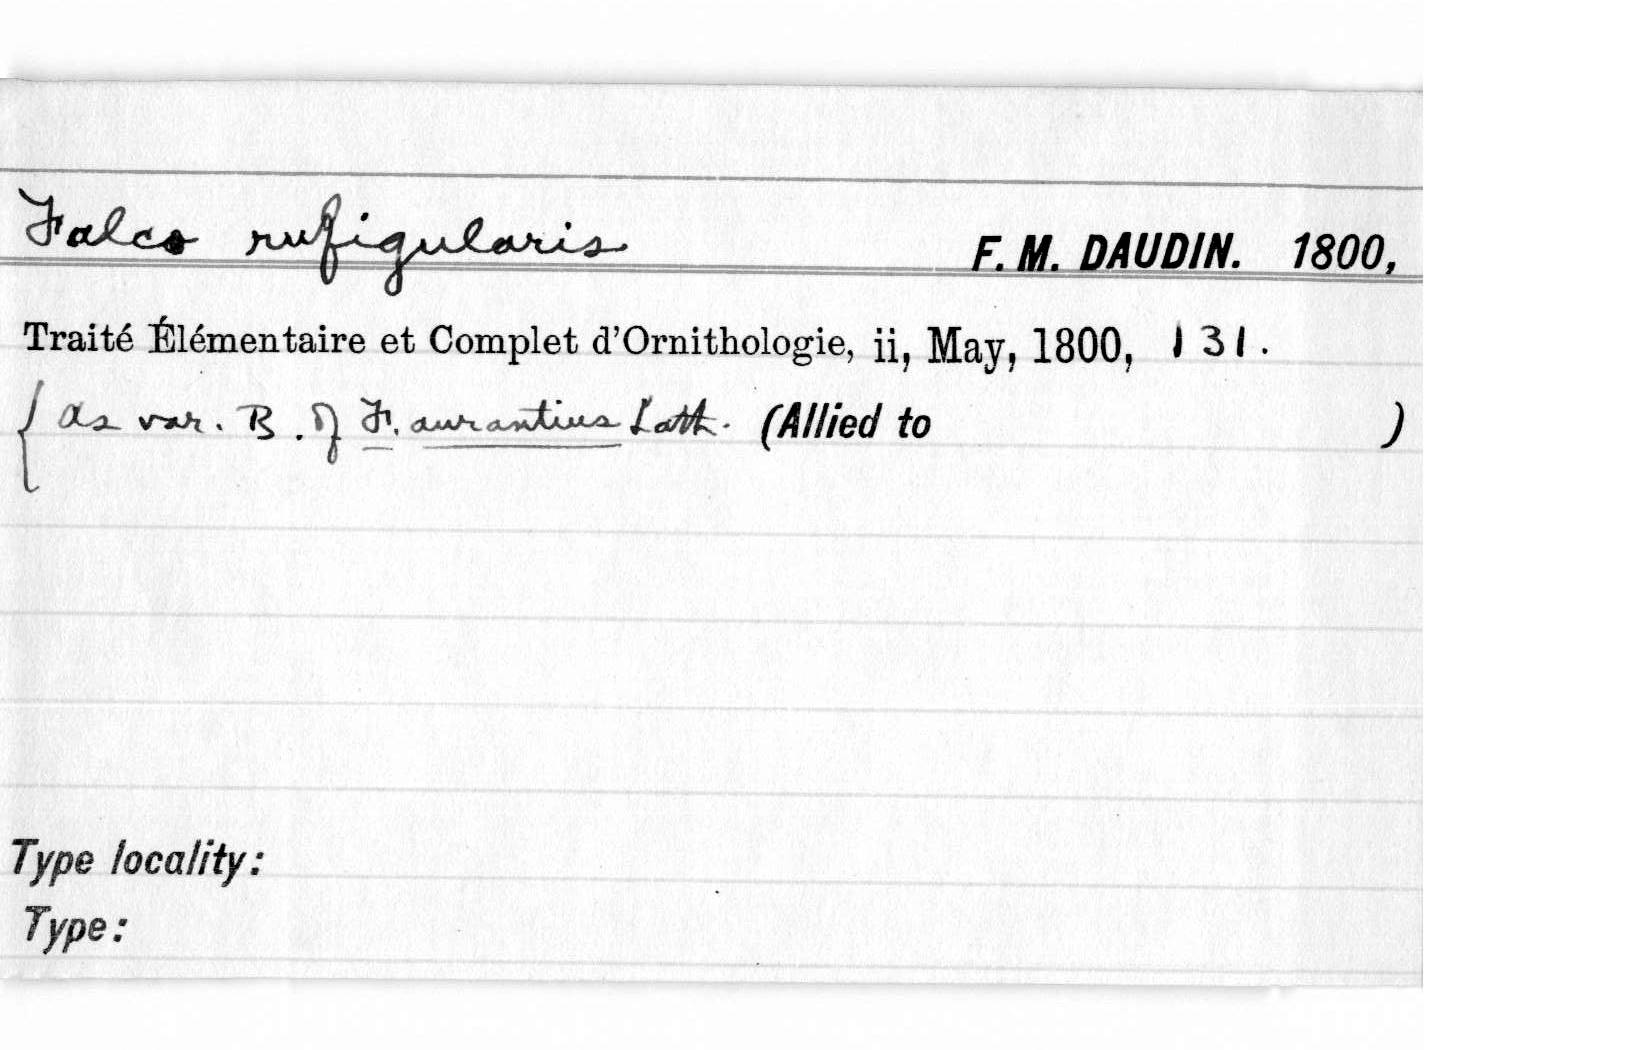 Falco rufigularis F. M. DAUDIN. 1800,
Traité Élémentaire et Complet d'Ornithologie, ii, May, 1800, 131.
{ As var. B. of F. aurantius Lath. (Allied to )
Type locality:
Type: